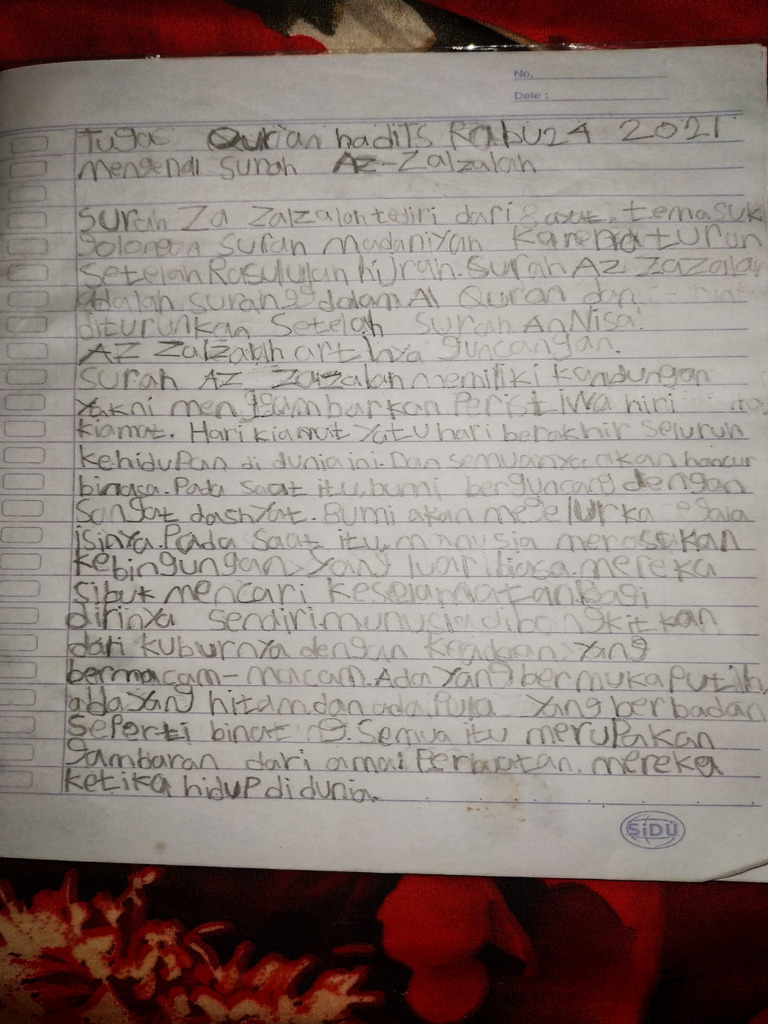 No.
Date :
Tugas Qurian hadits Rabu24 2021
mengendi surah Az-Zalzalah
surah Za Zalzalah tediri dari 8 ayat. temasuk
golongan surah madaniyah karena turun
setelah Rasululah hijrah. surah Az Zazala
adalah surah 99 dalam Al Quran dan
diturunkan setelah surah AnNisa.
AZ Zalzalah artinya guncangan.
surah AZ Zalzalah memiliki kandungan
yakni menggambarkan Peristiwa hiri
kiamat. Hari kiamat yatu hari berakhir seluruh
kehidupan di dunia ini. Dan semuanya akan hancur
binasa. Pada saat itu, bumi berguncang dengan
sangat dashyat. Bumi akan megelurka egala
isinya. Pada saat itu, manusia merasakan
kebingungan yang luar biasa. mereka
sibuk mencari keselamatan bagi
dirinya sendiri. manusia dibangkitkan
dari kuburnya dengan keadaan yang
bermacam-macam. Ada yang bermuka putih,
adda yang hitam, dan ada pula yang berbadan
seperti binat g. Semua itu merupakan
gambaran dari amal Perbuatan. mereka
ketika hidup di dunia.
SiDU